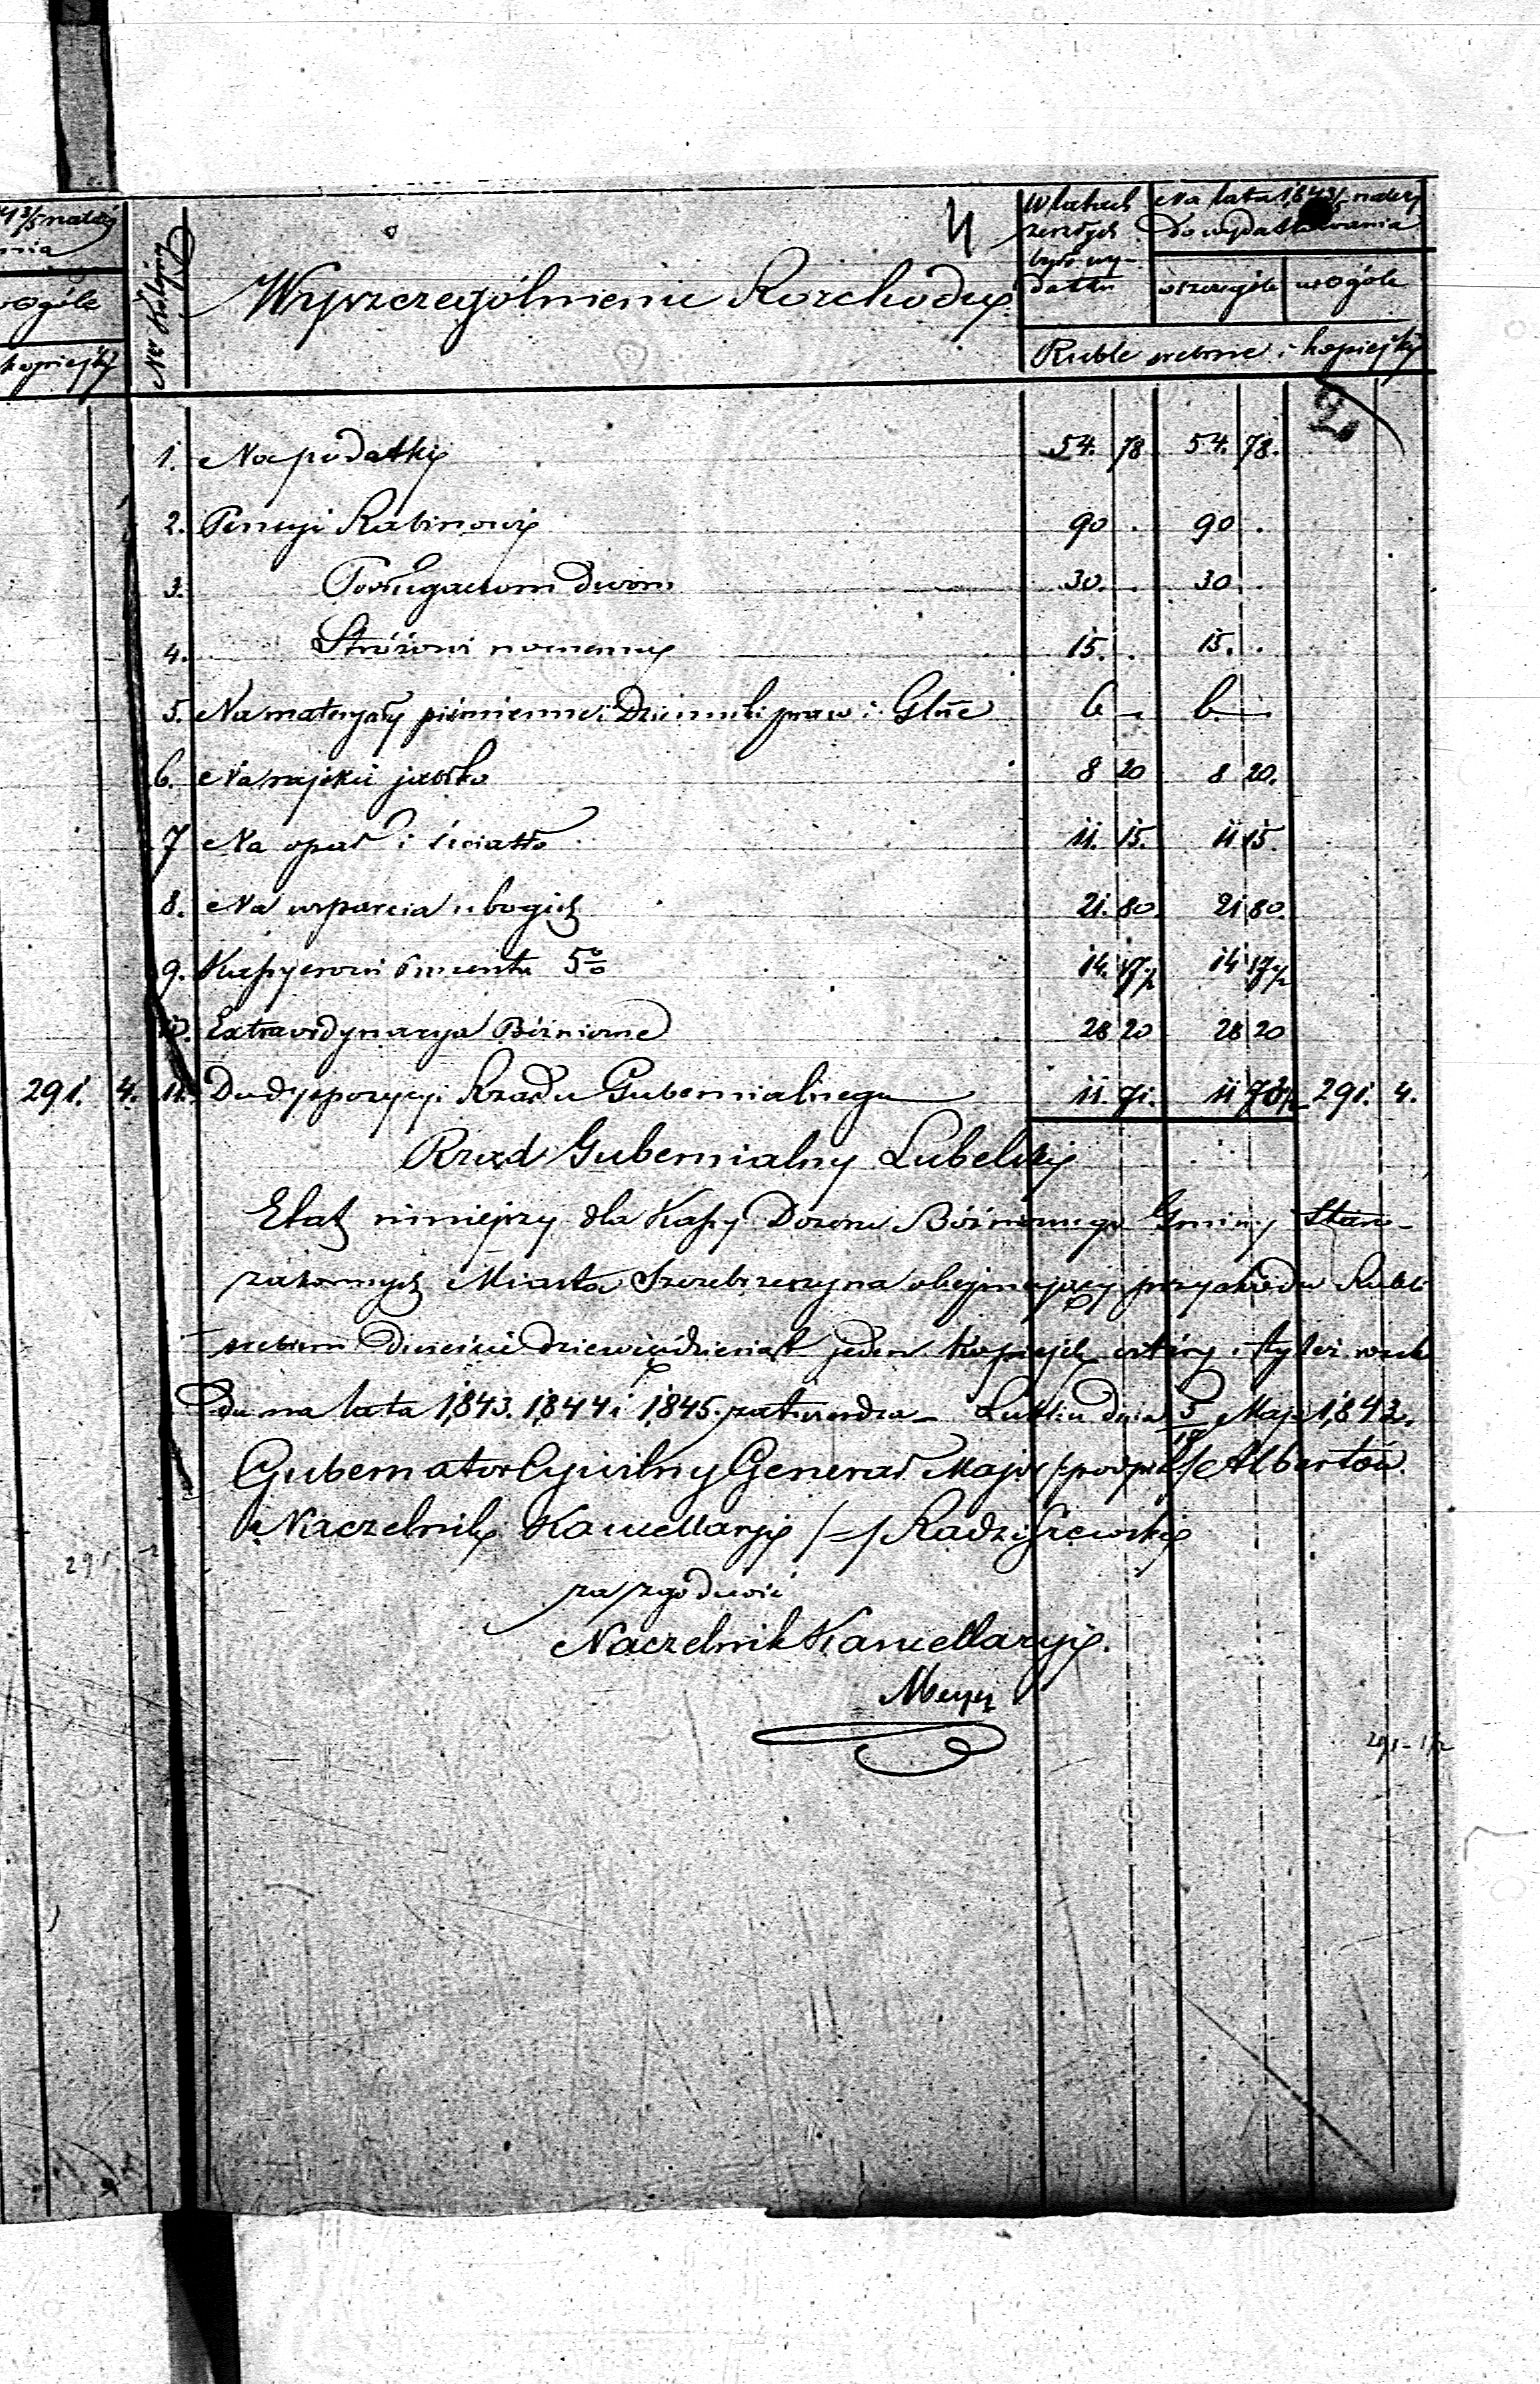 43/5 należy
nia
wogóle
kopiejki
291. 4.
4
Nr Kolejny
Wyszczególnienie Rozchodu
W latach zeszłych było wydatku
Na lata 1843/5 należy do wydatkowania
szczególe wogóle
Ruble srebrne i kopiejki
1. Na podatki 54. 78 54. 78.
2. Pensyi Rabinowi 90 . 90 .
3. Posługaczom dwom 30. . 30 .
4. Stróżowi nocnemu 15. . 15. .
5. Na materyały piśmienne i Dzienniki praw i 6 . 6. .
6. Na rajskie jabłko 8 20 8 20.
7 Na opał i światło 11. 15. 11 15.
8. Na wsparcia ubogich 21. 80. 21 80.
9. Kassyerowi procentu 5% 14. 17½ 14 17½
10. Extraordynarya Bóżniczne 28 20 28 20
11. Do dyspozycyi Rządu Gubernialnego 11. 71. 11 291. 4.
Rząd Gubernialny Lubelski
Etat niniejszy dla Kassy Dozoru Bóżnicznego Gminy Staro-
zakonnych Miasta Szczebrzeszyna obejmujący przychodu Rubli
srebrem dwieście dziewięćdziesiąt jeden kopiejek cztéry i tyleż rozcho
du na lata 1843. 1844 i 1845. zatwierdza - Lublin dnia 5/17 Maja 1842.
Gubernator Cywilny Generał Major /podpis/ Albertow.
Naczelnik Kancellaryi /-/ Radziszewski
za zgodność
Naczelnik Kancellaryi.
Meyer
291 - 1/2